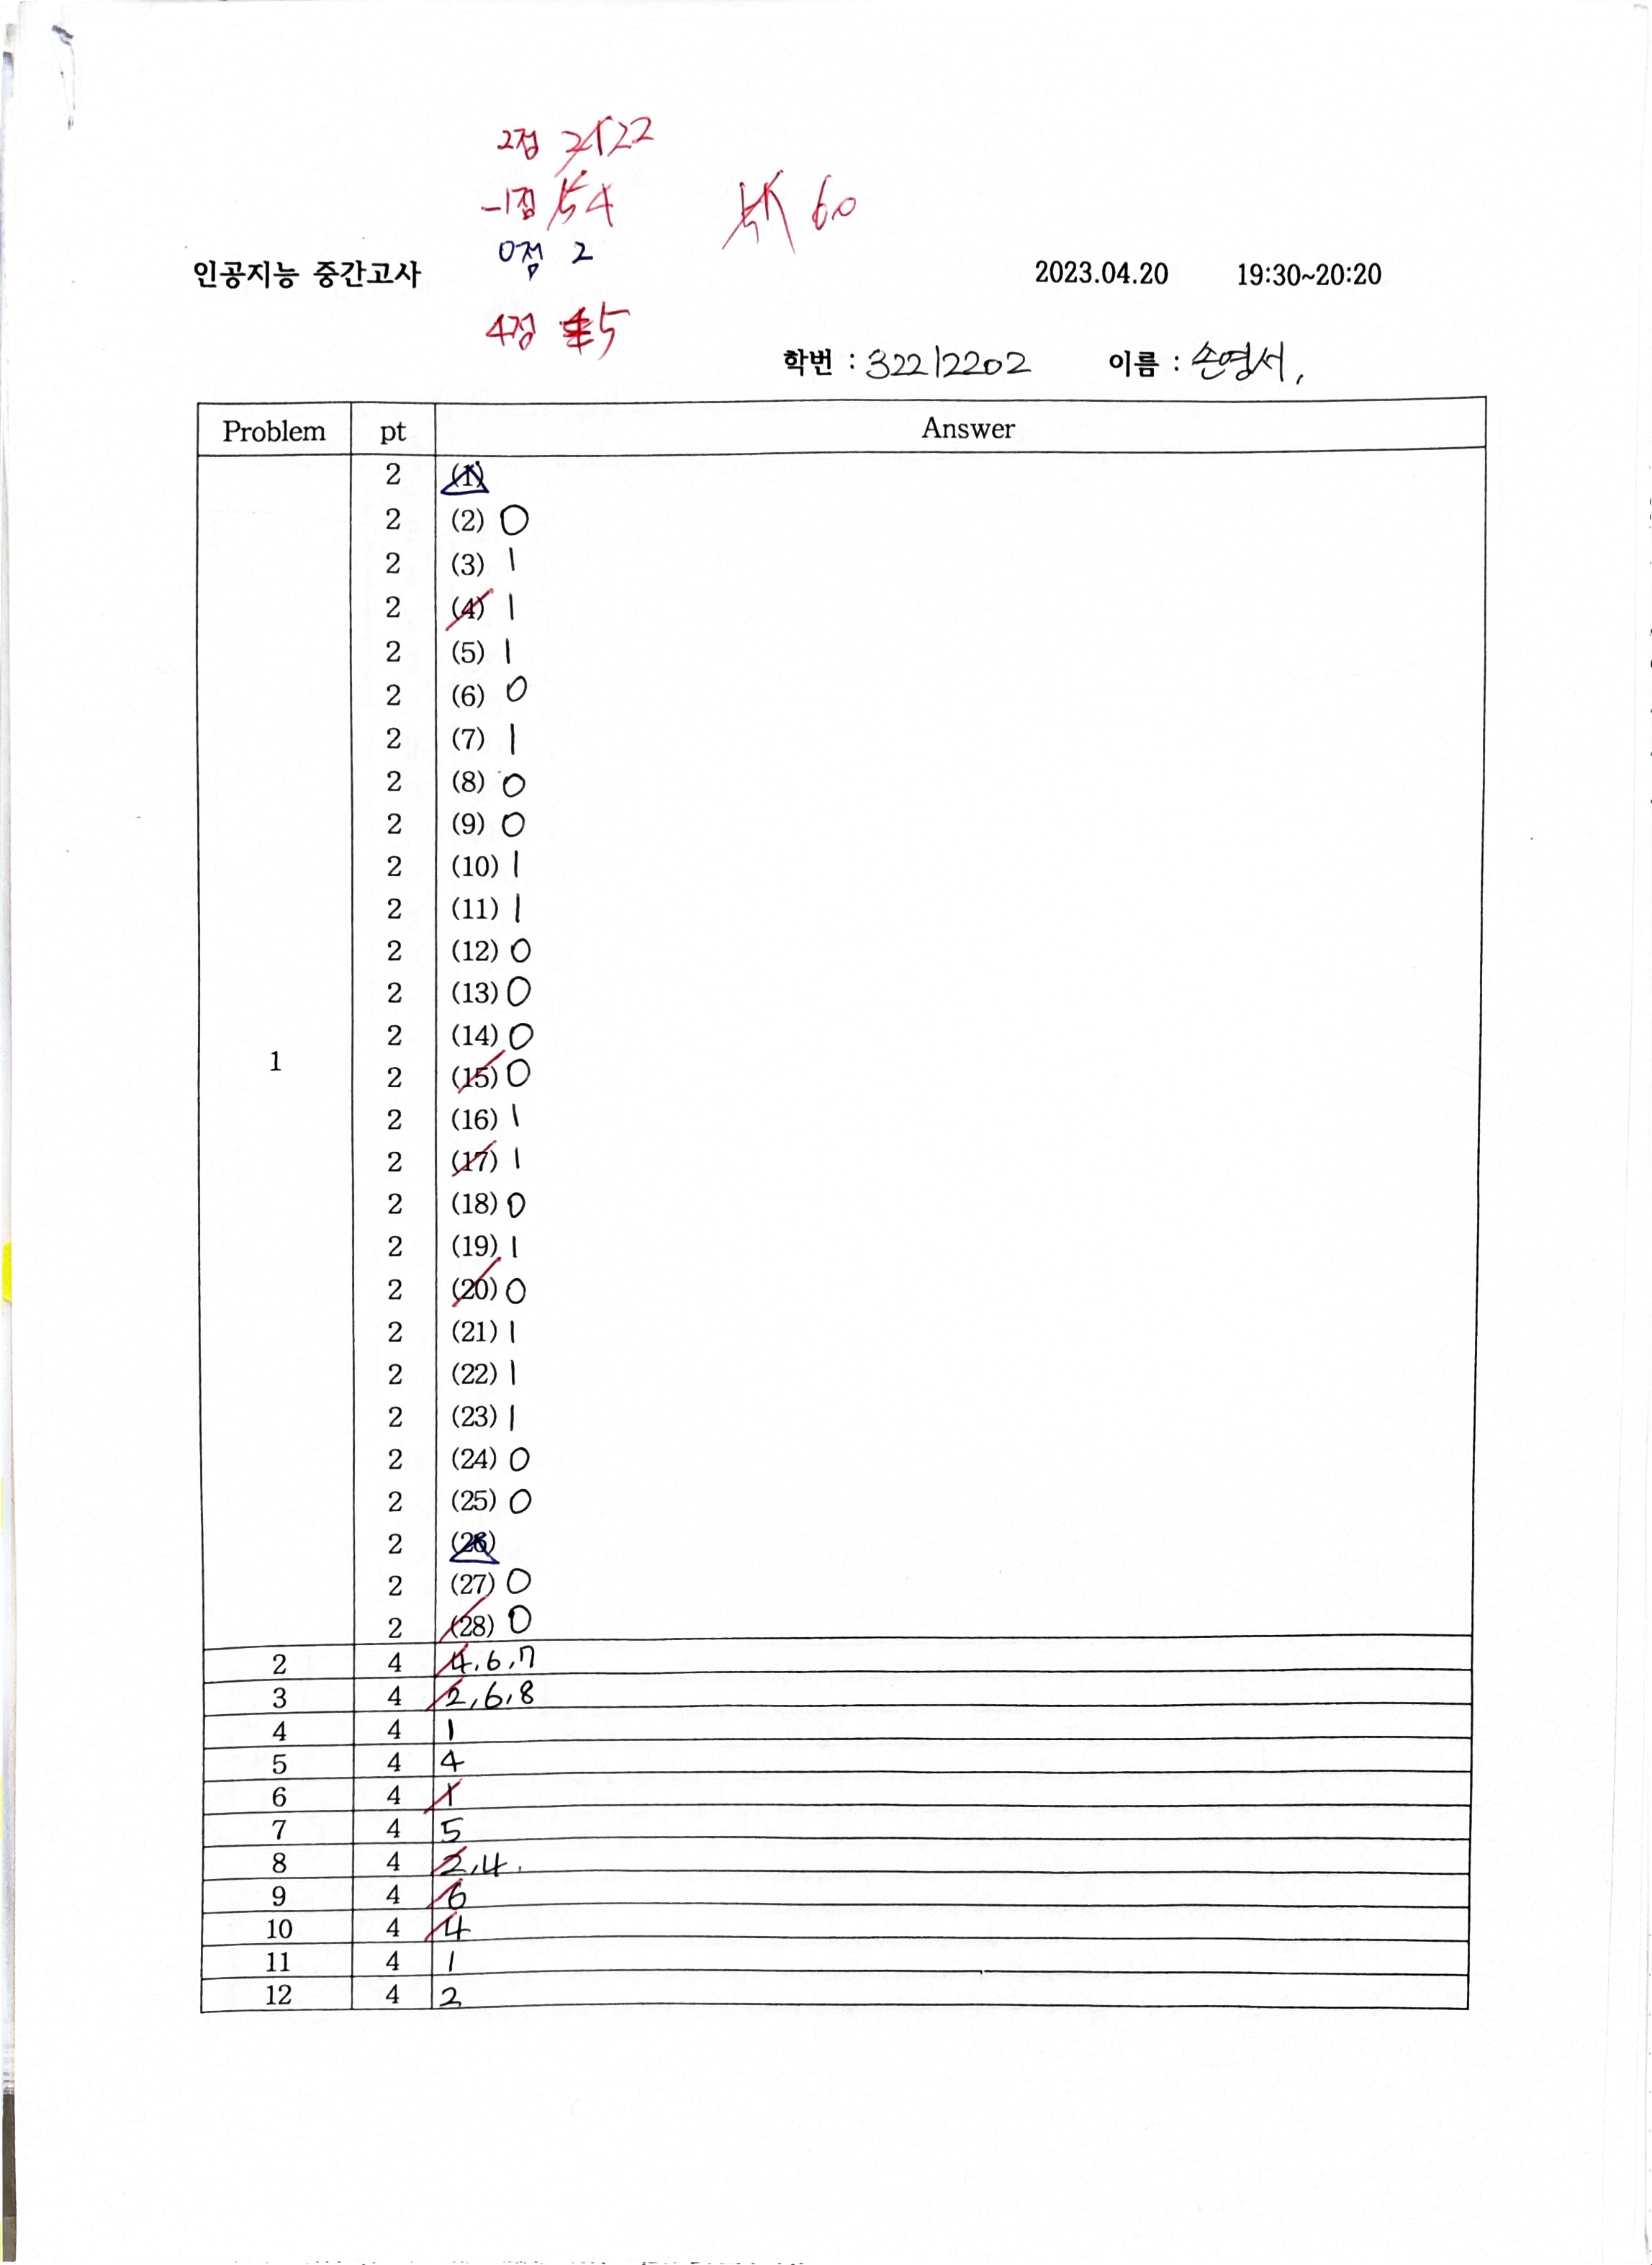 2점 22
-1점 4
60
0점 2
인공지능 중간고사 2023.04.20 19:30~20:20
4점 5
학번 : 32212202 이름 : 손영서,
Problem pt Answer
2 (1)
2 (2) 0
2 (3) 1
2 (4) 1
2 (5) 1
2 (6) 0
2 (7) 1
2 (8) 0
2 (9) 0
2 (10) 1
2 (11) 1
2 (12) 0
2 (13) 0
2 (14) 0
1
2 (15) 0
2 (16) 1
2 (17) 1
2 (18) 0
2 (19) 1
2 (20) 0
2 (21) 1
2 (22) 1
2 (23) 1
2 (24) 0
2 (25) 0
2 (26)
2 (27) 0
2 (28) 0
2 4 4,6,7
3 4 2,6,8
4 4 1
5 4 4
6 4 1
7 4 5
8 4 2,4.
9 4 6
10 4 4
11 4 1
12 4 2